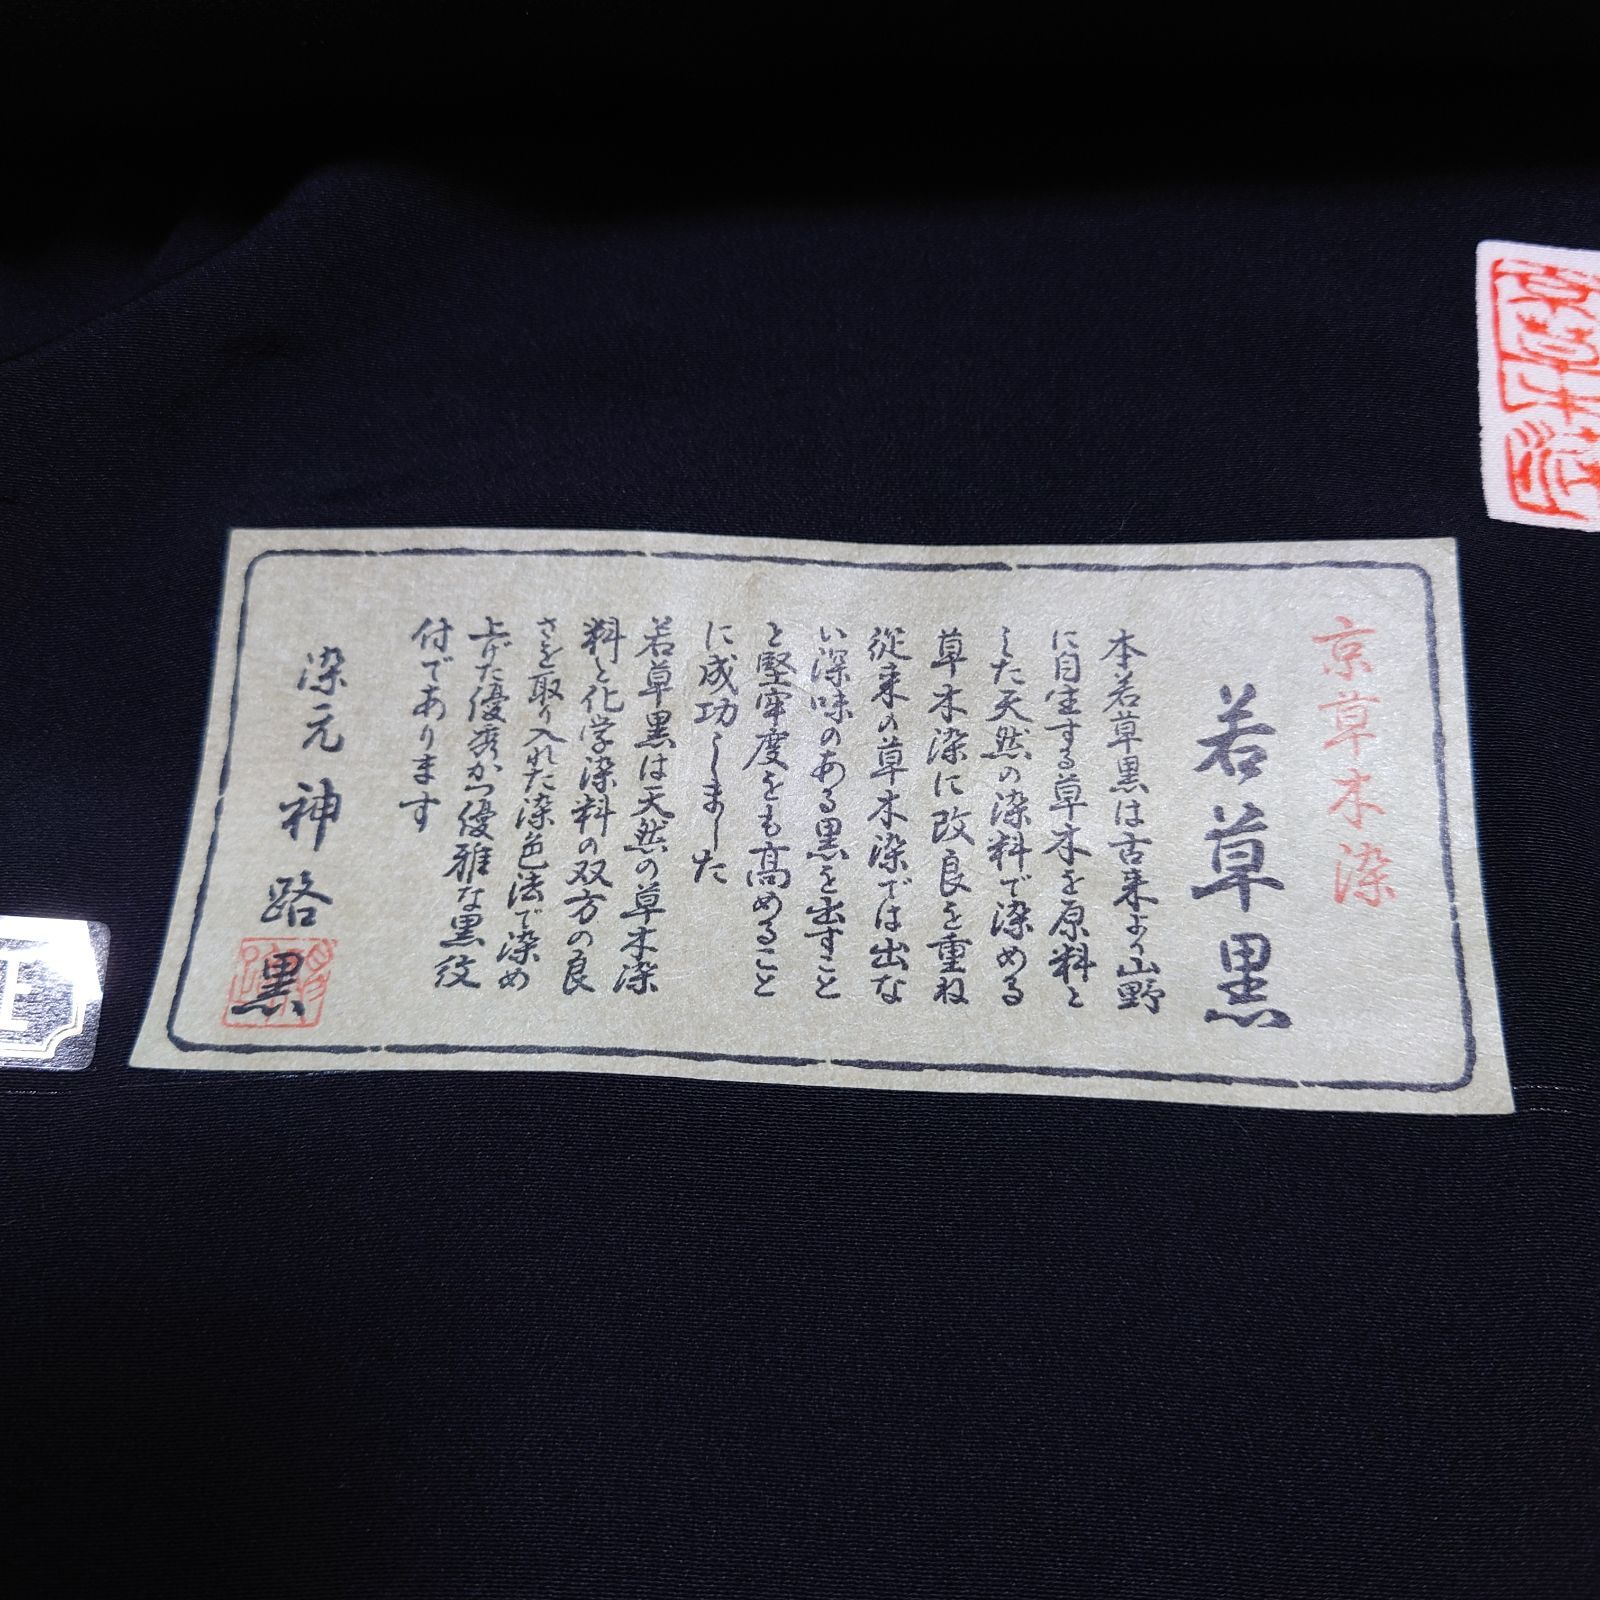 京草木染
若草黒
本若草黒は古来より山野
に自生する草木を原料と
した天然の染料で染める
草木染に改良を重ね
従来の草木染では出な
い深味のある黒を出すこと
と堅牢度をも高めること
に成功しました
若草黒は天然の草木染
料と化学染料の双方の良
さを取り入れた染色法で染め
上げた優秀かつ優雅な黒紋
付であります
染元 神路 黒